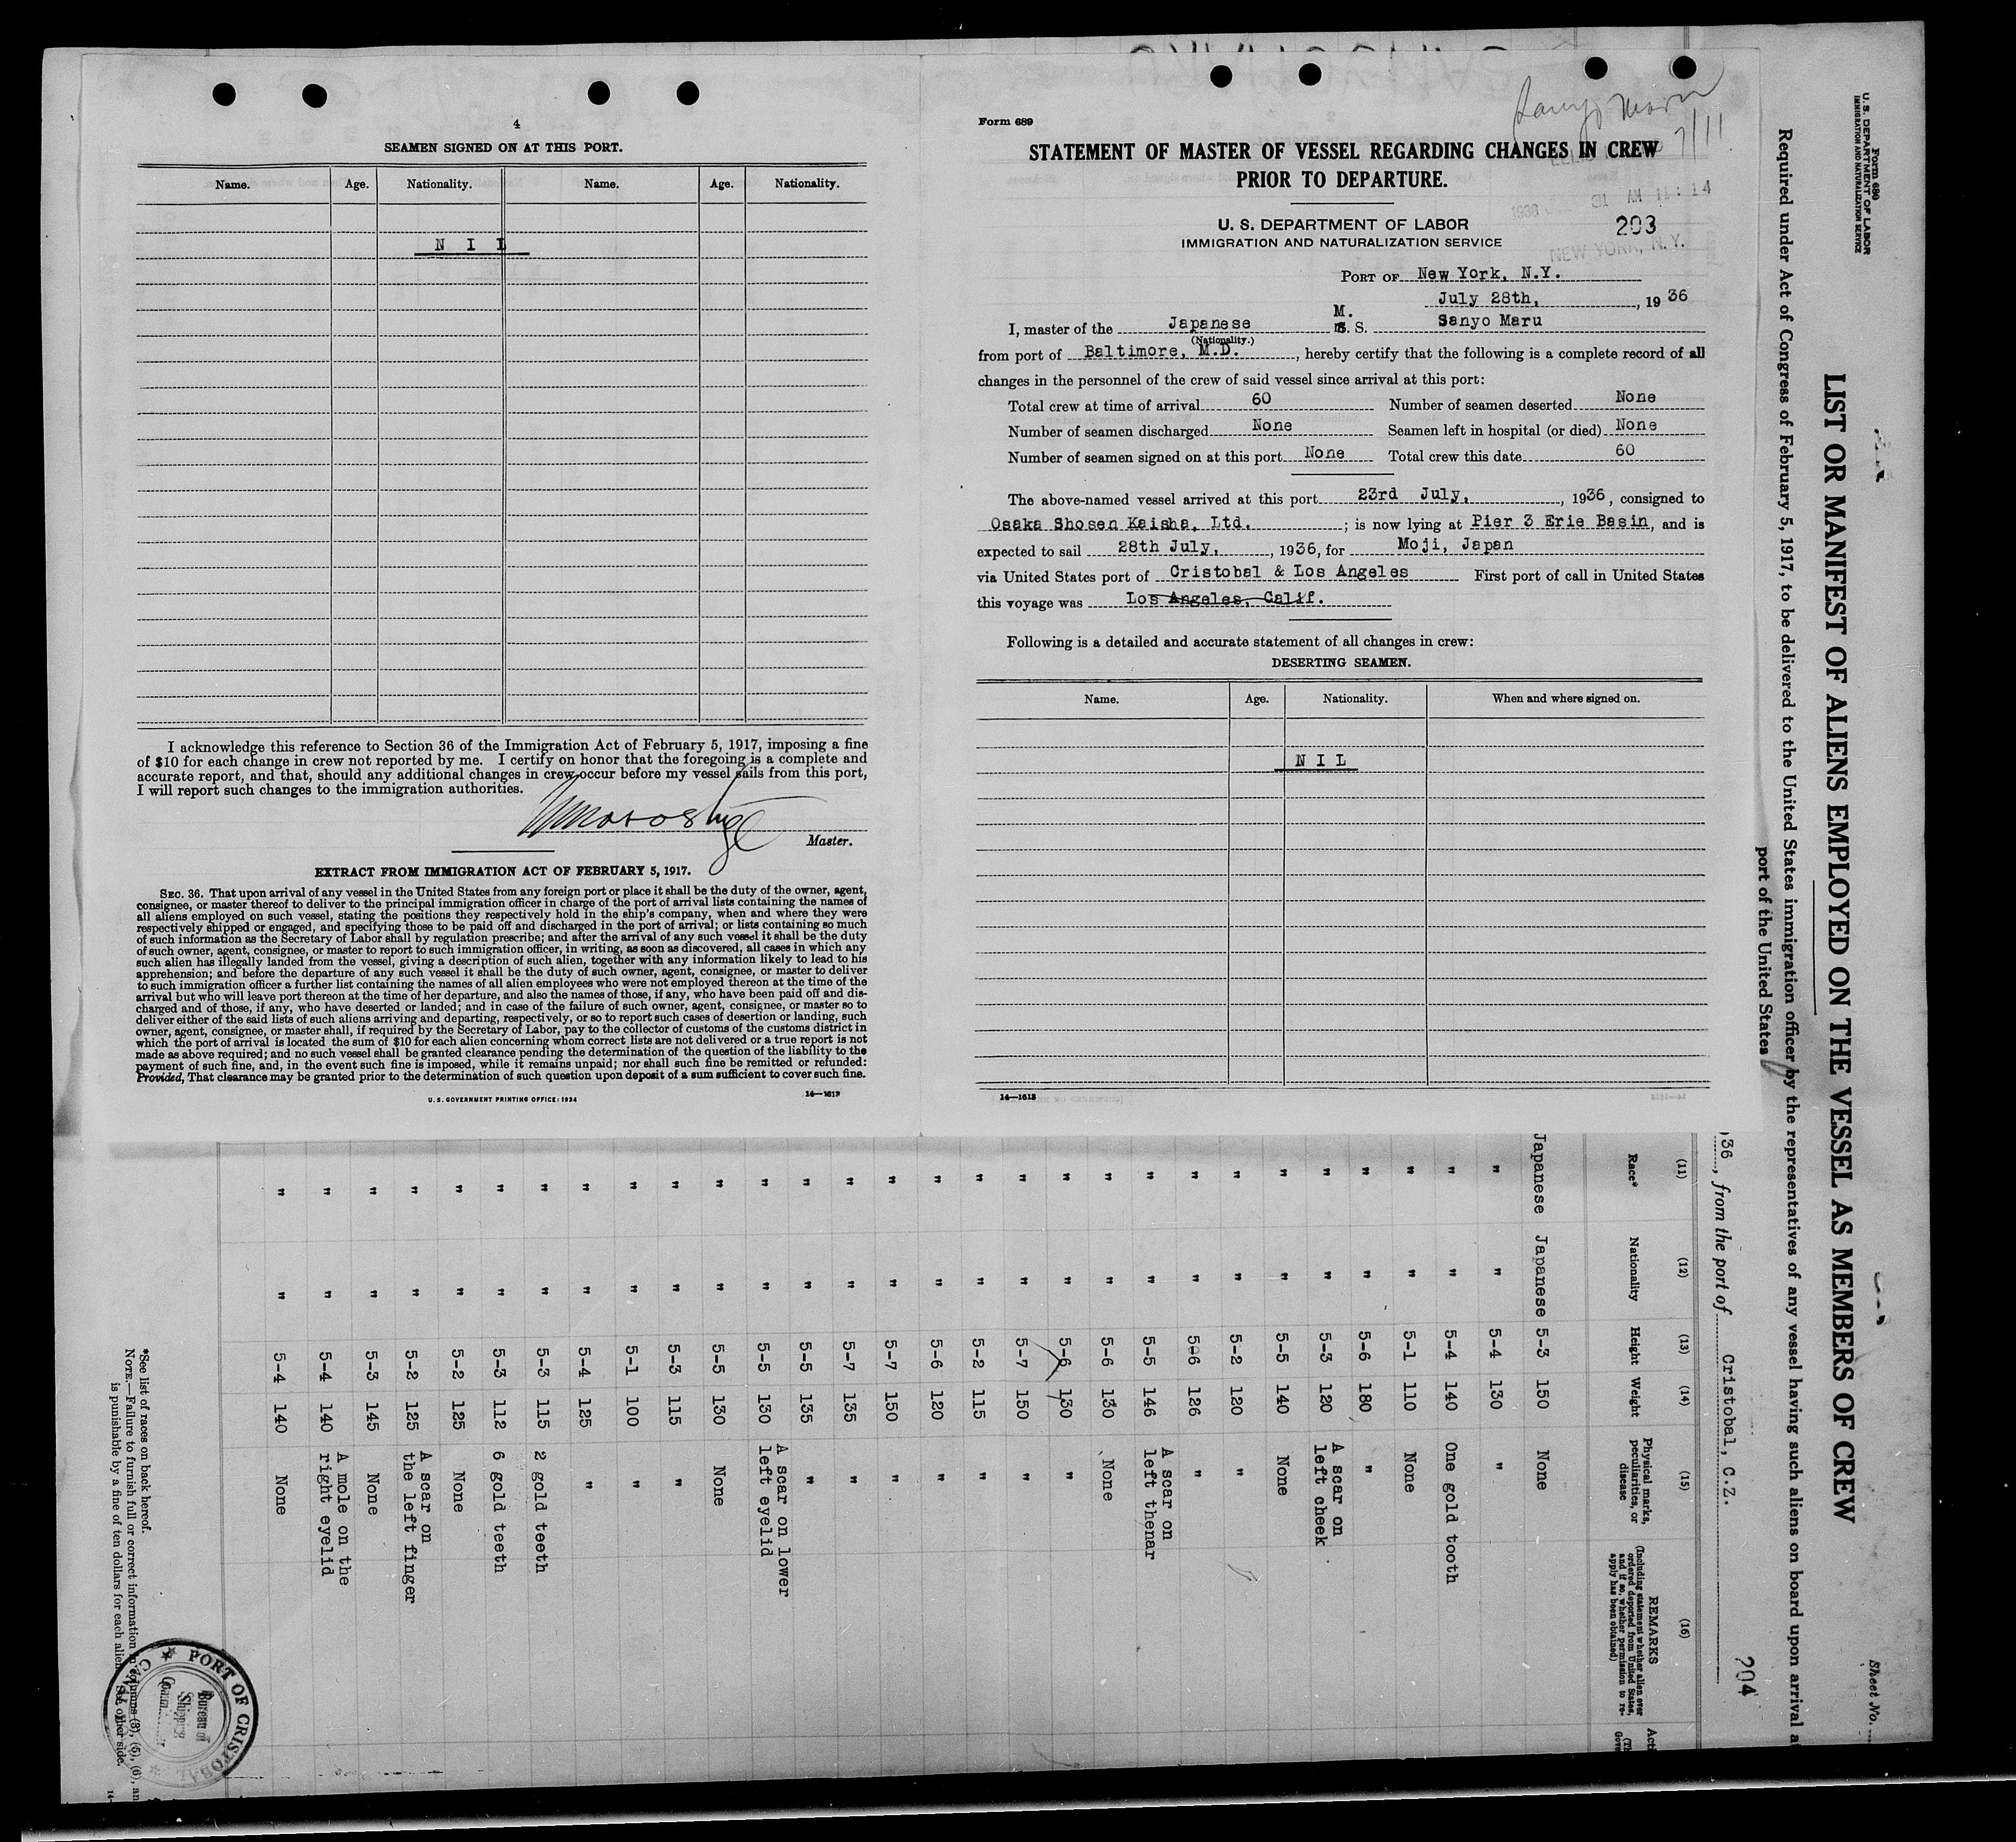 4
SEAMEN SIGNED ON AT THIS PORT.
Name. Age. Nationality. Name. Age. Nationality.
N I L
I acknowledge this reference to Section 36 of the Immigration Act of February 5, 1917, imposing a fine
of $10 for each change in crew not reported by me. I certify on honor that the foregoing is a complete and
accurate report, and that, should any additional changes in crew occur before my vessel sails from this port,
I will report such changes to the immigration authorities.
Master.
EXTRACT FROM IMMIGRATION ACT OF FEBRUARY 5, 1917.
SEC. 36. That upon arrival of any vessel in the United States from any foreign port or place it shall be the duty of the owner, agent,
consignee, or master thereof to deliver to the principal immigration officer in charge of the port of arrival lists containing the names of
all aliens employed on such vessel, stating the positions they respectively hold in the ship's company, when and where they were
respectively shipped or engaged, and specifying those to be paid off and discharged in the port of arrival; or lists containing so much
of such information as the Secretary of Labor shall by regulation prescribe; and after the arrival of any such vessel it shall be the duty
of such owner, agent, consignee, or master to report to such immigration officer, in writing, as soon as discovered, all cases in which any
such alien has illegally landed from the vessel, giving a description of such alien, together with any information likely to lead to his
apprehension; and before the departure of any such vessel it shall be the duty of such owner, agent, consignee, or master to deliver
to such immigration officer a further list containing the names of all alien employees who were not employed thereon at the time of the
arrival but who will leave port thereon at the time of her departure, and also the names of those, if any, who have been paid off and dis-
charged and of those, if any, who have deserted or landed; and in case of the failure of such owner, agent, consignee, or master so to
deliver either of the said lists of such aliens arriving and departing, respectively, or so to report such cases of desertion or landing, such
owner, agent, consignee, or master shall, if required by the Secretary of Labor, pay to the collector of customs of the customs district in
which the port of arrival is located the sum of $10 for each alien concerning whom correct lists are not delivered or a true report is not
made as above required; and no such vessel shall be granted clearance pending the determination of the question of the liability to the
payment of such fine, and, in the event such fine is imposed, while it remains unpaid; nor shall such fine be remitted or refunded:
Provided, That clearance may be granted prior to the determination of such question upon deposit of a sum sufficient to cover such fine.
U. S. GOVERNMENT PRINTING OFFICE: 1934 14—1613
Sanyo Maru
7/11
Form 689
STATEMENT OF MASTER OF VESSEL REGARDING CHANGES IN CREW
PRIOR TO DEPARTURE.
1936 31 AM 11:14
U. S. DEPARTMENT OF LABOR
IMMIGRATION AND NATURALIZATION SERVICE
203
NEW YORK, N.Y.
PORT OF New York, N.Y.
July 28th, , 1936
I, master of the Japanese M. S. Sanyo Maru
(Nationality.)
from port of Baltimore, M.D. , hereby certify that the following is a complete record of all
changes in the personnel of the crew of said vessel since arrival at this port:
Total crew at time of arrival 60 Number of seamen deserted None
Number of seamen discharged None Seamen left in hospital (or died) None
Number of seamen signed on at this port None Total crew this date 60
The above-named vessel arrived at this port 23rd July, , 1936, consigned to
Osaka Shosen Kaisha, Ltd. ; is now lying at Pier 3 Erie Basin, and is
expected to sail 28th July, , 1936, for Moji, Japan
via United States port of Cristobal & Los Angeles First port of call in United States
this voyage was Los Angeles, Calif.
Following is a detailed and accurate statement of all changes in crew:
DESERTING SEAMEN.
Name. Age. Nationality. When and where signed on.
N I L
14—1613
Form 680
U. S. DEPARTMENT OF LABOR
IMMIGRATION AND NATURALIZATION SERVICE
Sheet No.
LIST OR MANIFEST OF ALIENS EMPLOYED ON THE VESSEL AS MEMBERS OF CREW
Required under Act of Congress of February 5, 1917, to be delivered to the United States immigration officer by the representatives of any vessel having such aliens on board upon arrival at
port of the United States
204
36, from the port of Cristobal, C.Z.
(11) (12) (13) (14) (15) (16)
Race* Nationality Height Weight Physical marks, peculiarities, or disease REMARKS
(Including statement whether alien ever ordered deported from United States, and if so, whether permission to reapply has been obtained)
Japanese Japanese 5-3 150 None
" " 5-4 130 "
" " 5-4 140 One gold tooth
" " 5-1 110 None
" " 5-6 180 "
" " 5-3 120 A scar on left cheek
" " 5-5 140 None
" " 5-2 120 "
" " 5-6 126 "
" " 5-5 146 A scar on left thenar
" " 5-6 130 None
" " 5-6 130 "
" " 5-7 150 "
" " 5-2 115 "
" " 5-6 120 "
" " 5-7 150 "
" " 5-7 135 "
" " 5-5 135 "
" " 5-5 130 A scar on lower left eyelid
" " 5-5 130 None
" " 5-3 115 "
" " 5-1 100 "
" " 5-4 125 "
" " 5-3 115 2 gold teeth
" " 5-3 112 6 gold teeth
" " 5-2 125 None
" " 5-2 125 A scar on the left finger
" " 5-3 145 None
" " 5-4 140 A mole on the right eyelid
" " 5-4 140 None
*See list of races on back hereof.
NOTE.—Failure to furnish full or correct information in columns (3), (5), (6), an
is punishable by a fine of ten dollars for each alien. See other side.
PORT OF CRISTOBAL
CANAL
Bureau of
Shipping